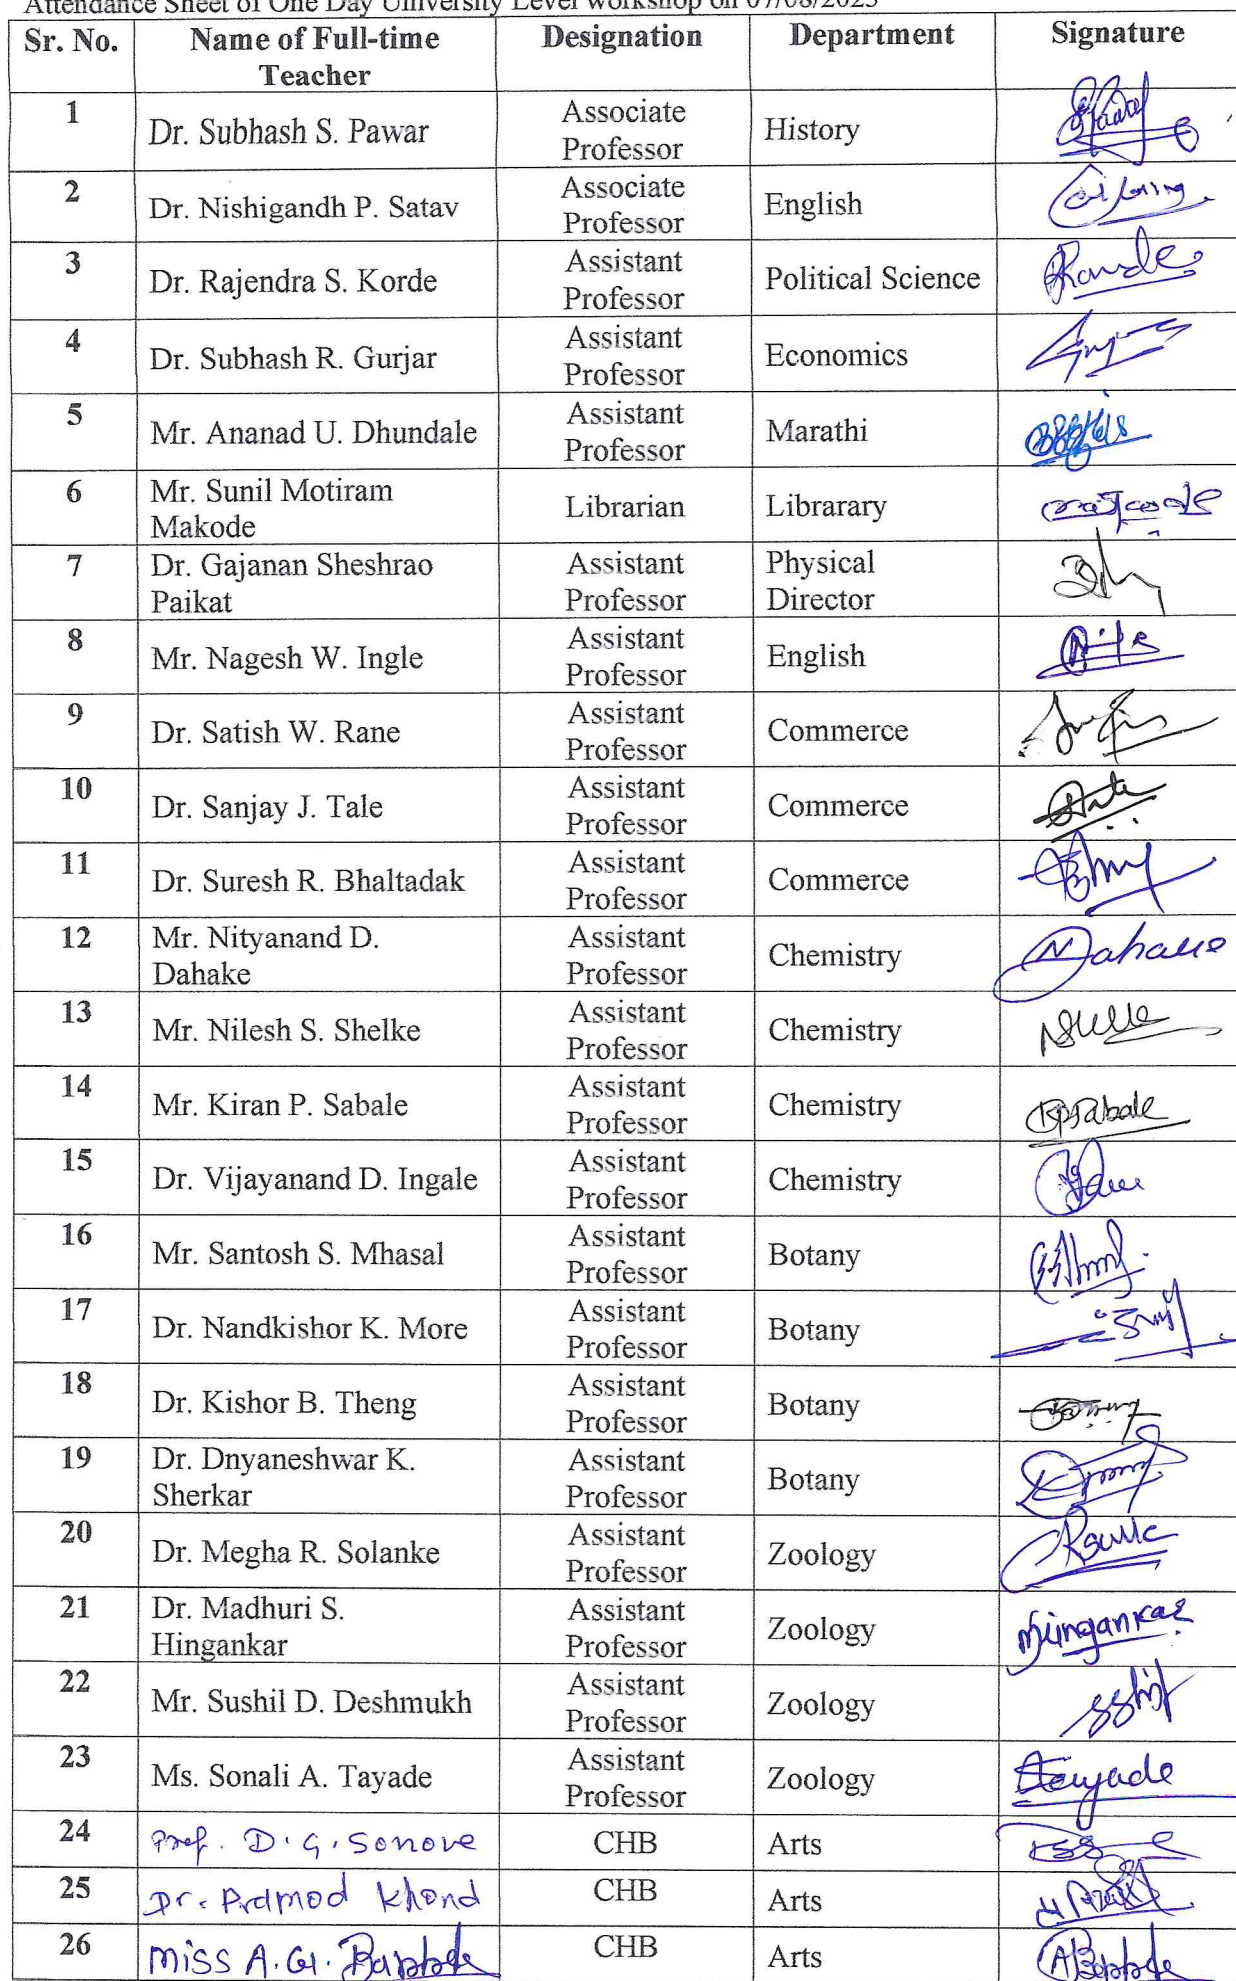 Attendance Sheet of One Day University Level workshop on 07/08/2023
Sr. No. Name of Full-time Teacher Designation Department Signature
1 Dr. Subhash S. Pawar Associate Professor History
2 Dr. Nishigandh P. Satav Associate Professor English
3 Dr. Rajendra S. Korde Assistant Professor Political Science
4 Dr. Subhash R. Gurjar Assistant Professor Economics
5 Mr. Ananad U. Dhundale Assistant Professor Marathi
6 Mr. Sunil Motiram Makode Librarian Librarary
7 Dr. Gajanan Sheshrao Paikat Assistant Professor Physical Director
8 Mr. Nagesh W. Ingle Assistant Professor English
9 Dr. Satish W. Rane Assistant Professor Commerce
10 Dr. Sanjay J. Tale Assistant Professor Commerce
11 Dr. Suresh R. Bhaltadak Assistant Professor Commerce
12 Mr. Nityanand D. Dahake Assistant Professor Chemistry
13 Mr. Nilesh S. Shelke Assistant Professor Chemistry
14 Mr. Kiran P. Sabale Assistant Professor Chemistry KPSabale
15 Dr. Vijayanand D. Ingale Assistant Professor Chemistry
16 Mr. Santosh S. Mhasal Assistant Professor Botany
17 Dr. Nandkishor K. More Assistant Professor Botany
18 Dr. Kishor B. Theng Assistant Professor Botany
19 Dr. Dnyaneshwar K. Sherkar Assistant Professor Botany
20 Dr. Megha R. Solanke Assistant Professor Zoology
21 Dr. Madhuri S. Hingankar Assistant Professor Zoology
22 Mr. Sushil D. Deshmukh Assistant Professor Zoology
23 Ms. Sonali A. Tayade Assistant Professor Zoology
24 Prof. D. G. Sonove CHB Arts
25 Dr. Pramod Khond CHB Arts
26 Miss A. G. CHB Arts